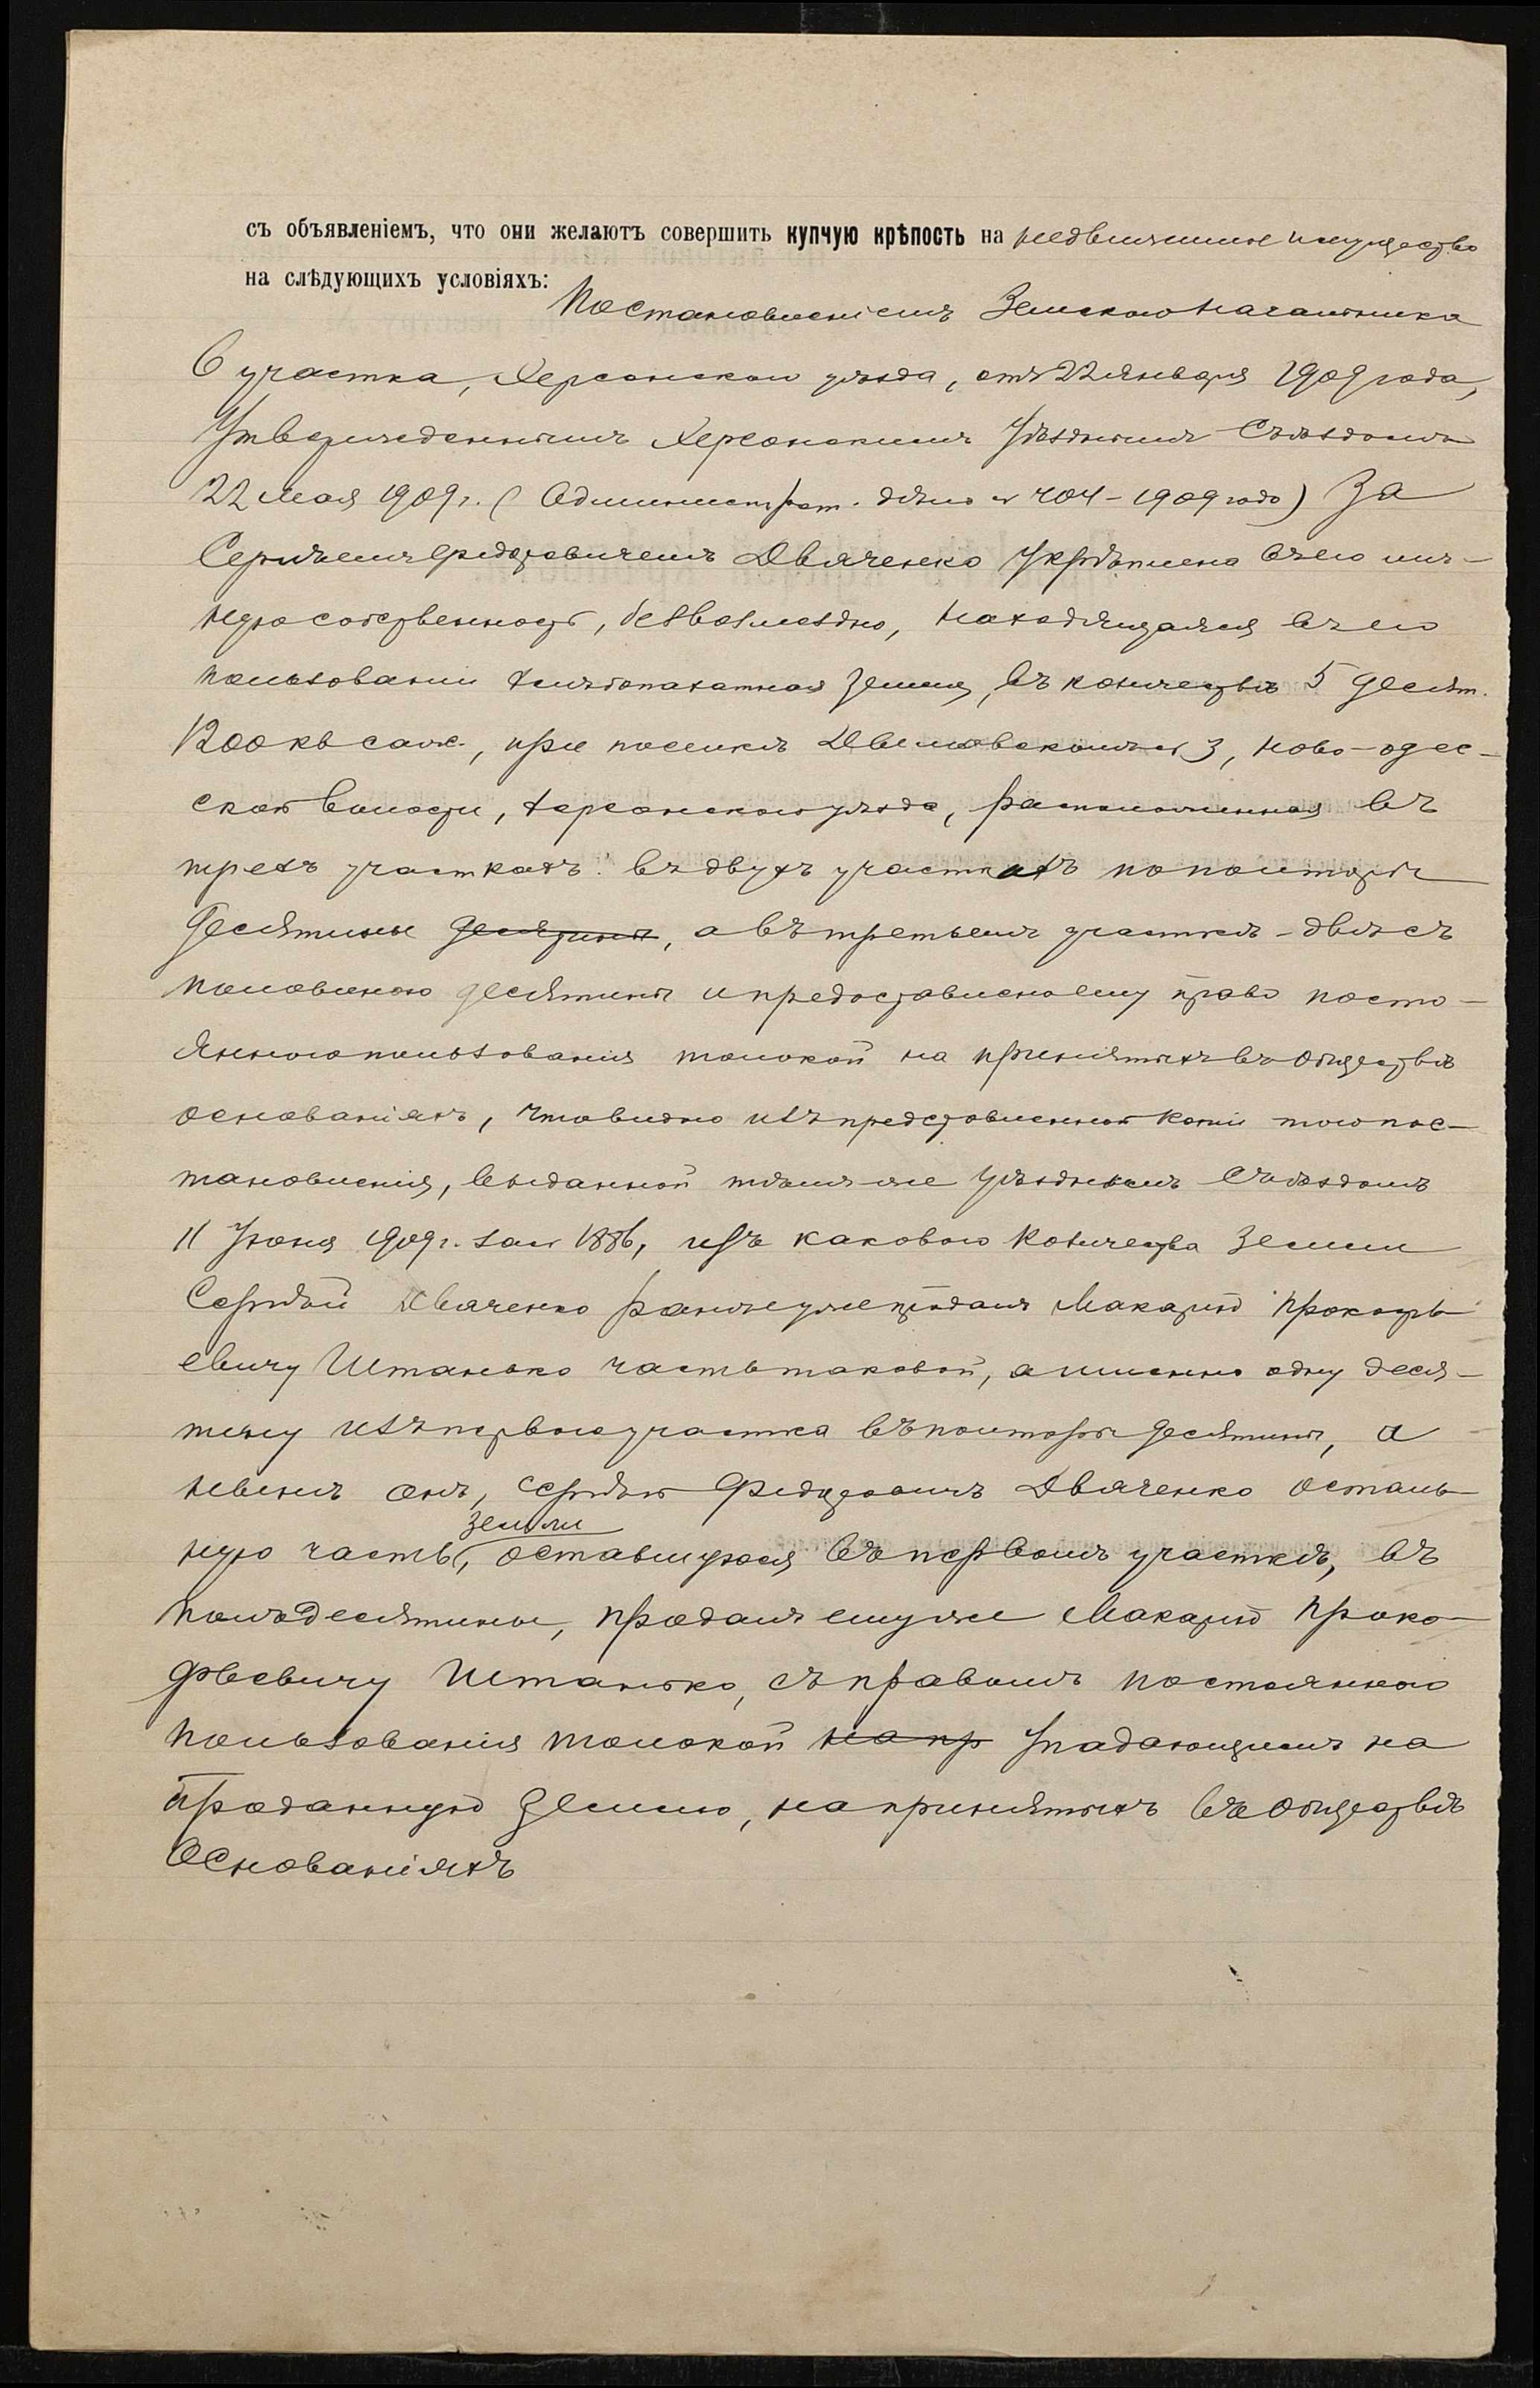 съ объявленіемъ, что они желаютъ совершить купчую крѣпость на недвижимое имущество
на слѣдующихъ условіяхъ:
Постановленіемъ Земскаго Начальника
6 участка, Херсонскаго уѣзда, отъ 22 января 1909 года,
Утвержденнымъ Херсонскимъ Уѣзднымъ Съѣздомъ
22 мая 1909 г. (Администрат. дѣло № 404-1909 года) За
Сергѣемъ Федоровичемъ Дьяченко Укрѣплена въ его лич-
ную собственность, безвозмездно, находящаяся въ его
пользовании хлѣбопахатная земля, въ количествѣ 5 десят.
1200 кв саж., при поселкѣ № 3, Ново-одес-
ской волости, Херсонскаго уѣзда, расположенная въ
трехъ участкахъ: въ двухъ участкахъ по полторы
десятины десятины, а въ третьемъ участкѣ - двѣ съ
половиною десятины и предоставлено ему право посто-
яннаго пользованія толокой на принятыхъ въ обществѣ
основаніяхъ, что видно изъ представленной копіи того пос-
тановленія, выданной тѣмъ-же Уѣзднымъ Съѣздомъ
11 Іюня 1909 г. за № 1886, изъ каковаго количества земли
Сергѣй Дьяченко раньше уже продалъ Макарію Прокофь-
евичу Штанько часть таковой, а именно одну деся-
тину изъ перваго участка въ полторы десятины, а
нынѣ онъ, Сергѣй Федоровичъ Дьяченко осталь-
земли
ную часть, оставшуюся въ первомъ участкѣ, въ
полъ десятины, продалъ ему же Макарію Проко-
фьевичу Штанько, съ правомъ постояннаго
пользованія толокой на пр упадающимъ на
проданную землю, на принятыхъ въ обществѣ
Основаніяхъ